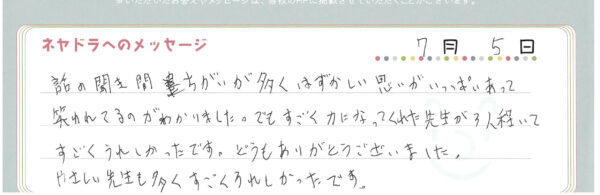 ネヤドラへのメッセージ
7月 5日
話の聞き間ちがいが多くはずかしい思いがいっぱいあって
笑われてるのがわかりました。でもすごく力になってくれた先生が3人経いて
すごくうれしかったです。どうもありがとうございました。
やさしい先生も多くすごくうれしかったです。